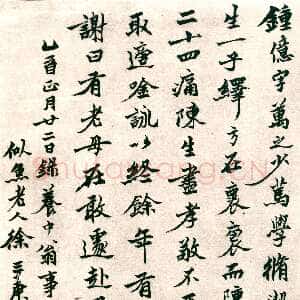 鍾億字萬之少篤學脩潔
生一子繹方在襄褒而陳
二十四痛陳生盡孝敬不
取適唫詠以終餘年有
謝曰有老母在敢遽赴
乙酉正月廿二日錄養中翁事
似魚老人徐三庚